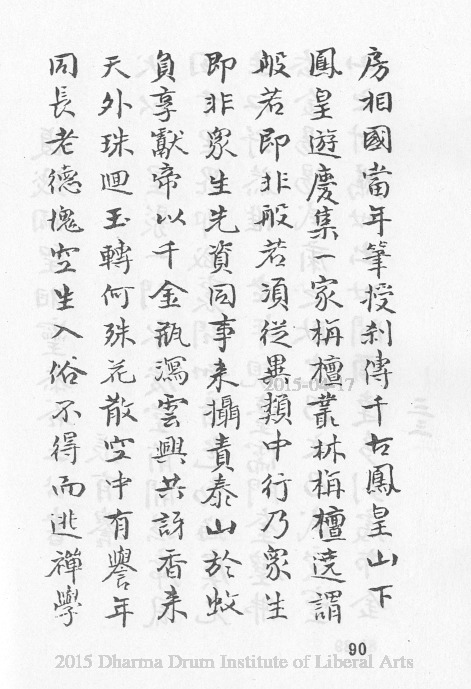 房相國當年筆授剎傳千古鳳皇山下
鳳皇遊慶集一家栴檀叢林栴檀遶謂
般若即非般若須從異類中行乃眾生
即非眾生先資同事來攝責泰山於蚊
負享獻帝以千金瓶瀉雲興共訝香來
天外珠迴玉轉何殊花散空中有譽年
同長老德愧空生入俗不得而逃禪學
2015-04-17
90
2015 Dharma Drum Institute of Liberal Arts